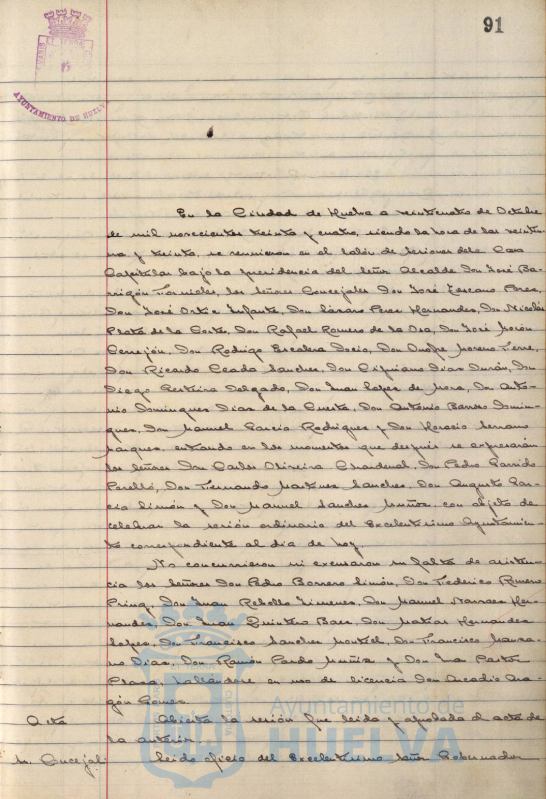 91
AYUNTAMIENTO DE HUELVA
En la Ciudad de Huelva a veintecuatro de Octubre
de mil novecientos treinta y cuatro, siendo la hora de las veintiu-
na y treinta, se reunieron en el Salón de sesiones de la Casa
Capitular bajo la presidencia del Señor Alcalde Don José Ba-
rrigón Fornieles, los señores Concejales Don José Lozcano Perez,
Don José Ortiz Infante, Don Lázaro Perez Hernandez, Don Nicolás
Prata de la Corte, Don Rafael Romero de la Osa, Don José Morón
Cerrejón, Don Rodrigo Escalera Socio, Don Onofre Moreno Ferre,
Don Ricardo Ceada Sanchez, Don Cipriano Dias Durán, Don
Diego Delgado, Don Juan Lopez de Mora, Don Anto-
nio Dominguez Dias de la Cuesta, Don Antonio Barroso Domin-
guez, Don Manuel Garcia Rodriguez y Don Horacio Serrano
Marquez, entrando en los momentos que despues se expresarán
los señores Don Carlos Oliveira Chardenal, Don Pedro Garrido
Perelló, Don Fernando Martinez Sanchez, Don Augusto Gar-
cia Limón y Don Manuel Sanchez Muñoz con objeto de
celebrar la sesión ordinaria del Excelentisimo Ayuntamien-
to correspondiente al dia de hoy.
No concurrieron ni excusaron su falta de asisten-
cia los señores Don Pedro Borrero Limón, Don Federico Romero
Don Juan Rebollo Jimenez, Don Manuel Narvaez Her-
nandez, Don Juan Quintero Baez, Don Matias Hernandez
Lopez, Don Francisco Sanchez Montiel, Don Francisco Manza-
no Dias, Don Ramón Pardo Muñiz y Don Pastor
Plaza, hallándose en uso de licencia Don Arcadio Ara-
gón Gomez.
Acta Abierta la sesión fue leida y aprobada el acta de
la anterior.
Leido oficio del Excelentisimo Señor Gobernador
Ayuntamiento de
HUELVA